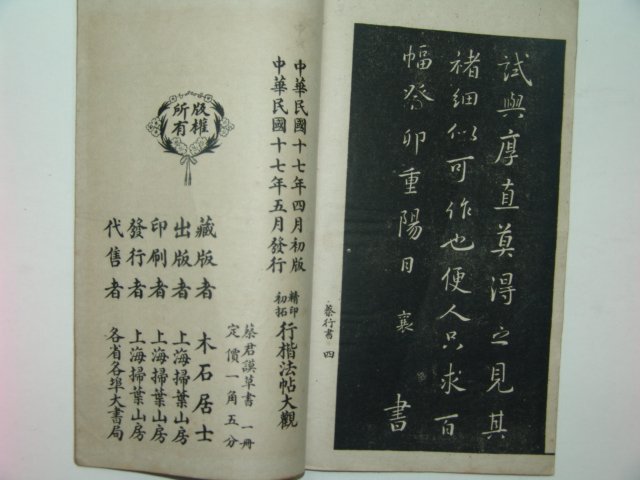 試與厚直莫得之見其
楮細似可作也便人只求百
幅癸卯重陽日襄
書
蔡行書 四
中華民國十七年四月初版
中華民國十七年五月發行
精印初拓 行楷法帖大觀
蔡君謨草書 一冊
定價一角五分
版權所有
藏版者 木石居士
出版者 上海掃葉山房
印刷者 上海掃葉山房
發行者 上海掃葉山房
代售者 各省各埠大書局